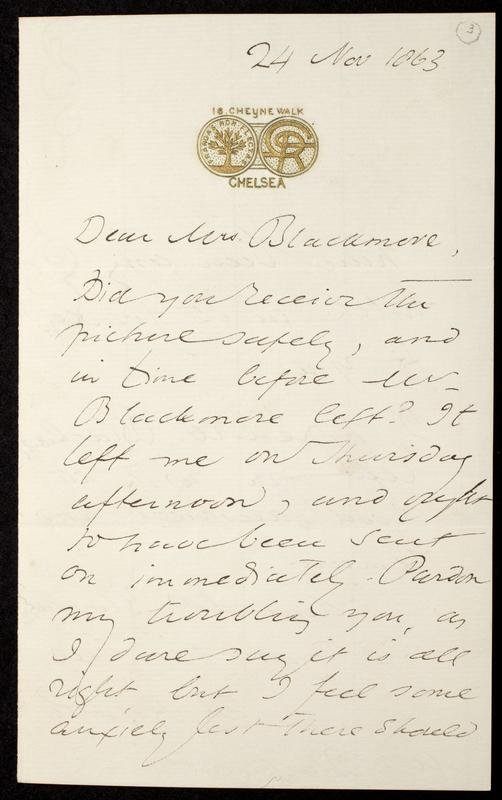 3
24 Nov 1863
16. CHEYNE WALK
FRANGAS NON FLECTAS
DGR
CHELSEA
Dear Mrs. Blackmore,
Did you receive the
picture safely, and
in time before Mr
Blackmore left? It
left me on Thursday
afternoon, and ought
to have been sent
on immediately. Pardon
my troubling you, as
I dare say it is all
right but I feel some
anxiety lest there should